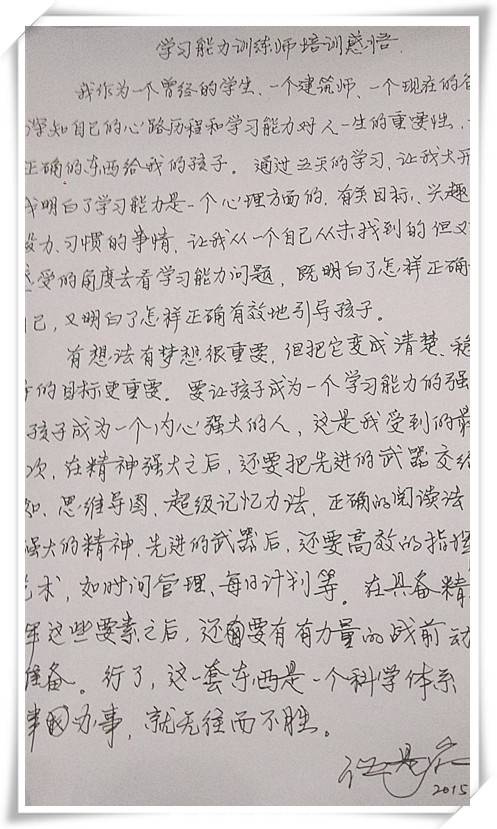 学习能力训练师培训感悟
我作为一个曾经的学生、一个建筑师、一个现在的
深知自己的心路历程和学习能力对人一生的重要性,
正确的东西给我的孩子。通过五天的学习,让我大开
我明白了学习能力是一个心理方面的、有关目标、兴趣
毅力、习惯的事情,让我从一个自己从未找到的但又
受的角度去看学习能力问题,既明白了怎样正确
己,又明白了怎样正确有效地引导孩子。
有想法有梦想很重要,但把它变成清楚、稳
的目标更重要。要让孩子成为一个学习能力的强
孩子成为一个内心强大的人,这是我受到的最
次,在精神强大之后,还要把先进的武器交给
如,思维导图、超级记忆力法、正确的阅读法
强大的精神、先进的武器后,还要高效的指挥
艺术,如时间管理、每日计划等。在具备精
这些要素之后,还需要有有力量的战前动
准备。行了,这一套东西是一个科学体系
办事,就无往而不胜。
2015